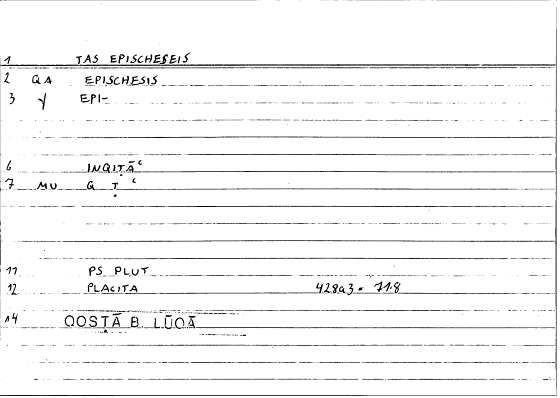 1 TAS EPISCHESEIS
2 QA EPISCHESIS
3 γ EPI-
6 INQIṬĀᶜ
7 MU Q Ṭ ᶜ
11 PS PLUT
12 PLACITA 428a3 = 718
14 QOSṬĀ B. LŪQĀ